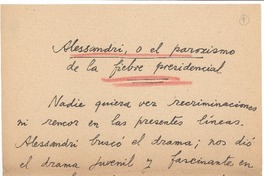 Alessandri, o el paroxismo
de la fiebre presidencial
Nadie quiera ver recriminaciones
ni rencor en las presentes líneas.
Alessandri buscó el drama; nos dió
el drama juvenil y fascinante en